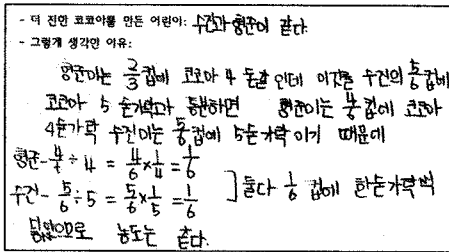 - 더 진한 코코아를 만든 어린이: 수진과 형준이 같다.
- 그렇게 생각한 이유:
형준이는 2/3컵에 코코아 4 숟갈 인데 이것을 수진의 5/6컵에
코코아 5 숟가락과 통분하면 형준이는 4/6컵에 코코아
4숟가락 수진이는 5/6컵에 5숟가락 이기 때문에
형준 - 4/6 ÷ 4 = 4/6 × 1/4 = 1/6
수진 - 5/6 ÷ 5 = 5/6 × 1/5 = 1/6 ] 둘다 1/6 컵에 한숟가락씩
넣었으므로 농도는 같다.